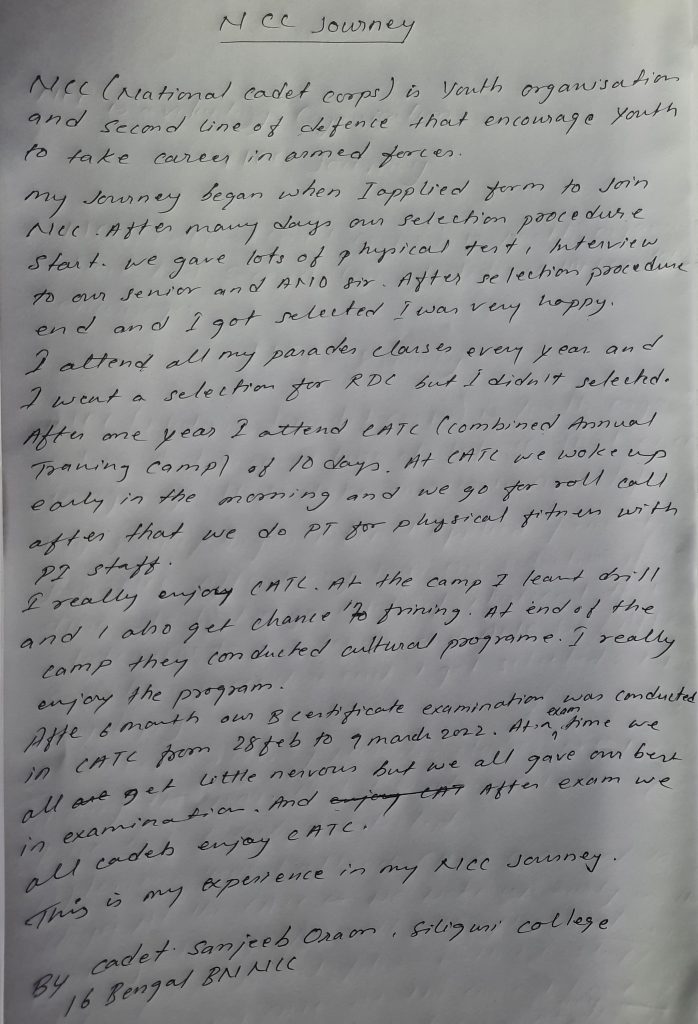 NCC Journey
NCC (National cadet corps) is Youth organisation
and second line of defence that encourage youth
to take career in armed forces.
My Journey began when I applied form to Join
NCC. After many days our selection procedure
start. we gave lots of physical test, Interview
to our senior and ANO sir. After selection procedure
end and I got selected I was very happy.
I attend all my parades classes every year and
I went a selection for RDC but I didn't selected.
After one year I attend CATC (combined Annual
Traning Camp) of 10 days. At CATC we woke up
early in the morning and we go for roll call
after that we do PT for physical fitness with
PI staff.
I really enjoy CATC. At the camp I leant drill
and I also get chance to frining. At end of the
camp they conducted cultural programe. I really
enjoy the program.
Afte 6 month our B certificate examination was conducted
in CATC from 28 feb to 9 march 2022. At exam time we
all are get little nervous but we all gave our best
in examination. And enjoy CAT After exam we
all cadets enjoy CATC.
This is my experience in my NCC Journey.
By cadet. Sanjeeb Oraon, Siliguri college
16 Bengal BN NCC